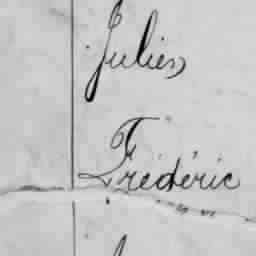 Julien
Frédéric